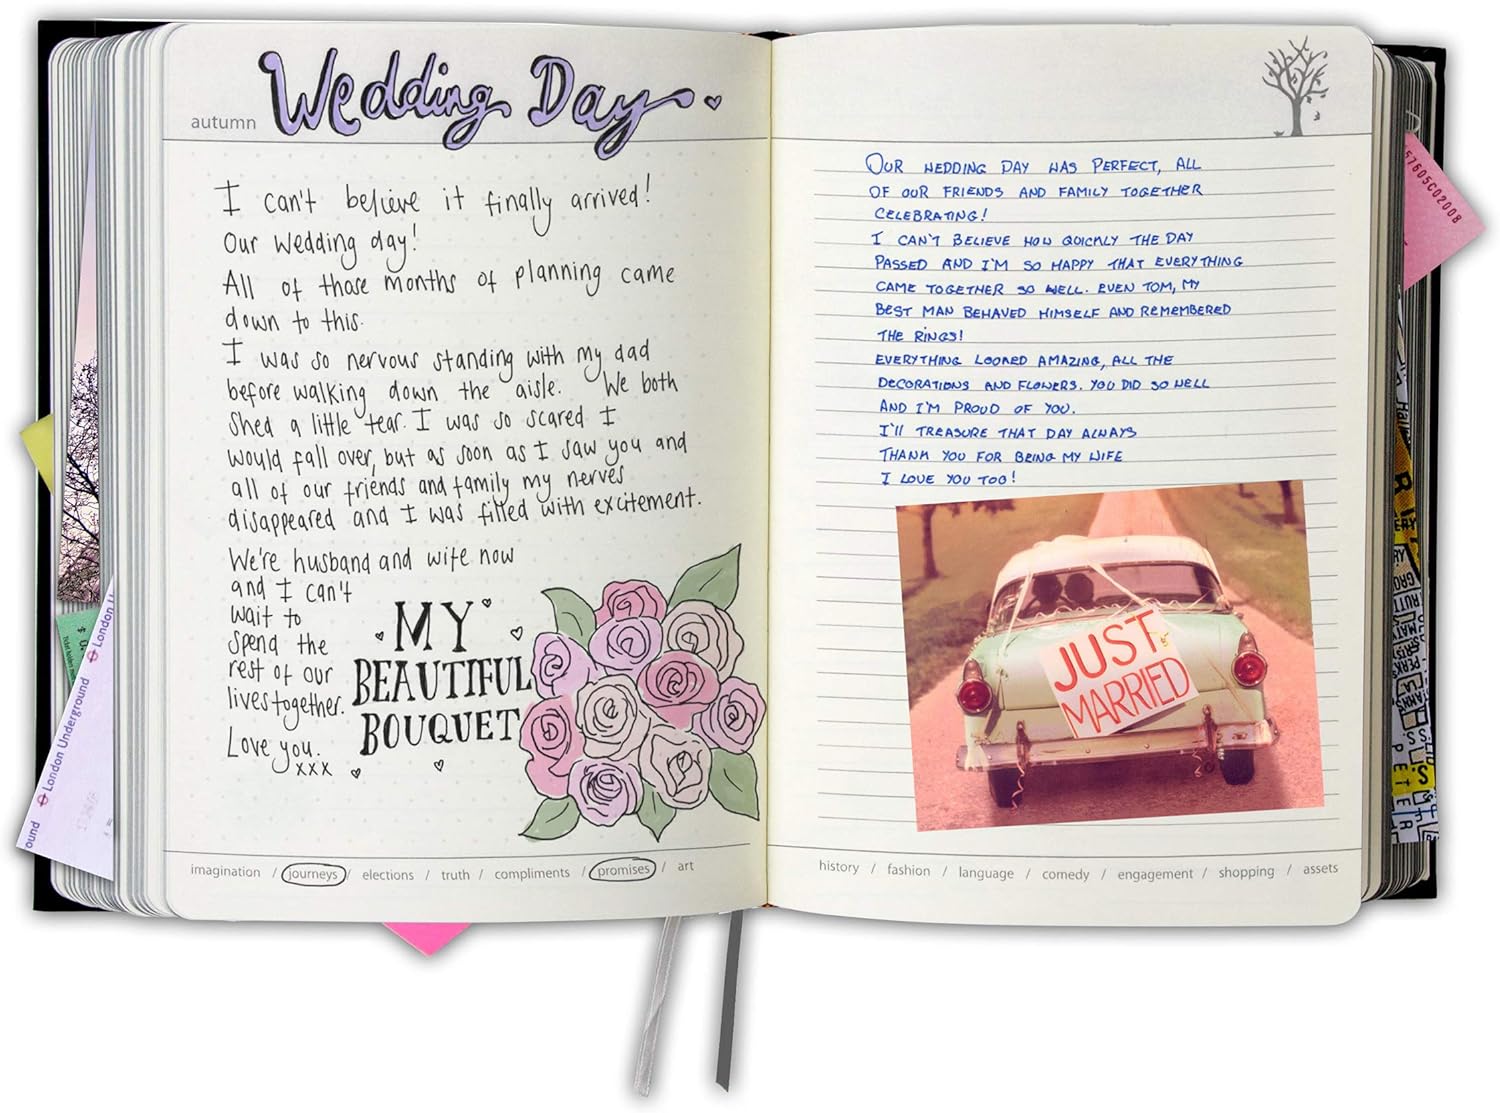 autumn
Wedding Day
I can't believe it finally arrived!
Our wedding day!
All of those months of planning came
down to this.
I was so nervous standing with my dad
before walking down the aisle. We both
shed a little tear. I was so scared I
would fall over, but as soon as I saw you and
all of our friends and family my nerves
disappeared and I was filled with excitement.
We're husband and wife now
and I can't
wait to
spend the
rest of our
lives together.
Love you.
xxx
MY
BEAUTIFUL
BOUQUET
imagination / journeys / elections / truth / compliments / promises / art
OUR WEDDING DAY WAS PERFECT, ALL
OF OUR FRIENDS AND FAMILY TOGETHER
CELEBRATING!
I CAN'T BELIEVE HOW QUICKLY THE DAY
PASSED AND I'M SO HAPPY THAT EVERYTHING
CAME TOGETHER SO WELL. EVEN TOM, MY
BEST MAN BEHAVED HIMSELF AND REMEMBERED
THE RINGS!
EVERYTHING LOOKED AMAZING, ALL THE
DECORATIONS AND FLOWERS. YOU DID SO WELL
AND I'M PROUD OF YOU.
I'LL TREASURE THAT DAY ALWAYS
THANK YOU FOR BEING MY WIFE
I LOVE YOU TOO!
JUST
MARRIED
history / fashion / language / comedy / engagement / shopping / assets
57605C02008
London Underground
London U
ound